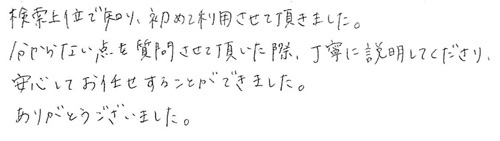 検索上位で知り、初めて利用させて頂きました。
分からない点を質問させて頂いた際、丁寧に説明してくださり、
安心してお任せすることができました。
ありがとうございました。